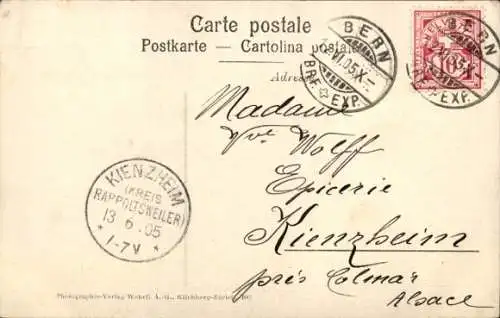 Carte postale
Postkarte — Cartolina postale
Adresse
BERN
12.VI.05.X-
BRF. EXP.
BERN
12.VI.05.X-
BRF. EXP.
HELVETIA
10
Madame
Vve Wolff
Epicerie
Kienzheim
près Colmar
Alsace
KIENZHEIM
(KREIS
RAPPOLTSWEILER)
13 6 05
* 1-7V *
Photographie-Verlag Wehrli A.-G., Kilchberg-Zürich